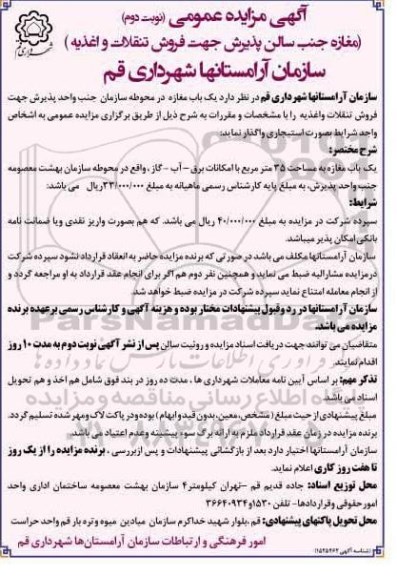 آگهی مزایده عمومی (نوبت دوم)
(مغازه جنب سالن پذیرش جهت فروش تنقلات و اغذیه)
سازمان آرامستانها شهرداری قم
سازمان آرامستانها شهرداری قم در نظر دارد یک باب مغازه در محوطه سازمان جنب واحد پذیرش جهت
فروش تنقلات واغذیه را با مشخصات و مقررات به شرح ذیل از طریق برگزاری مزایده عمومی به اشخاص
واجد شرایط بصورت استیجاری واگذار نماید:
شرح مختصر:
یک باب مغازه به مساحت ۳۵ متر مربع با امکانات برق – آب – گاز ، واقع در محوطه سازمان بهشت معصومه
جنب واحد پذیرش، به مبلغ پایه کارشناس رسمی ماهیانه به مبلغ ۲۳/۰۰۰/۰۰۰ ریال می باشد:
شرایط:
سپرده شرکت در مزایده به مبلغ ۴۰/۰۰۰/۰۰۰ ریال می باشد. که هم بصورت واریز نقدی ویا ضمانت نامه
بانکی امکان پذیر میباشد.
سازمان آرامستانها مکلف می باشد در صورتی که برنده مزایده حاضر به انعقاد قرارداد نشود سپرده شرکت
درمزایده مشارالیه ضبط می نماید و همچنین نفر دوم هم اگر برای انجام عقد قرارداد به او مراجعه گردد و
از انجام معامله امتناع نماید سپرده شرکت در مزایده ضبط خواهد شد.
سازمان آرامستانها در رد وقبول پیشنهادات مختار بوده و هزینه آگهی و کارشناس رسمی برعهده برنده
مزایده می باشد.
متقاضیان می توانند جهت دریافت اسناد مزایده و رویت سالن پس از نشر آگهی نوبت دوم به مدت ۱۰ روز
اقدام نمایند.
تذکر مهم: بر اساس آیین نامه معاملات شهرداری ها ، مدت ده روز در بند فوق شامل هم اخذ و هم تحویل
اسناد می باشد.
مبلغ پیشنهادی از حیث مبلغ (مشخص، معین، بدون قید و ابهام) بوده ودر پاکت لاک ومهر شده تسلیم گردد.
برنده مزایده در زمان عقد قرارداد ملزم به ارائه برگ سوء پیشینه وعدم اعتیاد می باشد.
سازمان آرامستانها اختیار دارد بعد از بازگشائی پیشنهادات و پس ازبررسی ، برنده مزایده را از یک روز
تا هفت روز کاری اعلام نماید.
محل توزیع اسناد: جاده قدیم قم –تهران کیلومتر ۴ سازمان بهشت معصومه ساختمان اداری واحد
امور حقوقی وقراردادها- تلفن ۱۵۳۰و۳۶۶۴۰۹۳۴
محل تحویل پاکتهای پیشنهادی: قم ،بلوار شهید خداکرم سازمان میادین میوه وتره بار قم واحد حراست
امور فرهنگی و ارتباطات سازمان آرامستان‌ها شهرداری قم